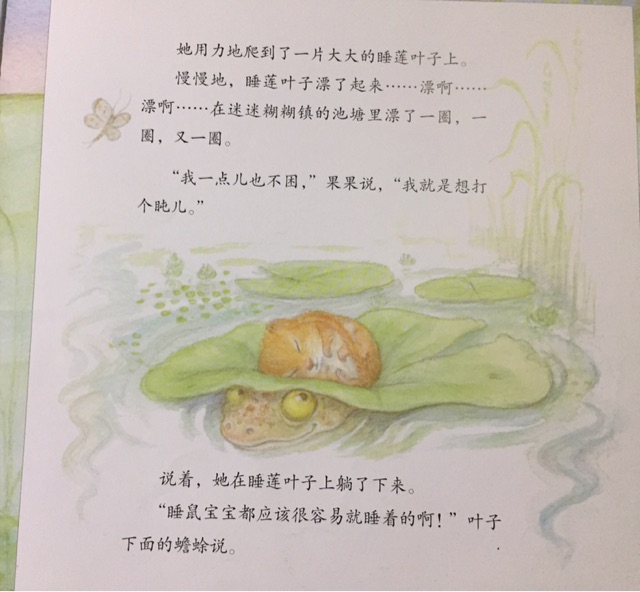 她用力地爬到了一片大大的睡莲叶子上。
慢慢地，睡莲叶子漂了起来……漂啊……
漂啊……在迷迷糊糊镇的池塘里漂了一圈，一
圈，又一圈。
“我一点儿也不困，”果果说，“我就是想打
个盹儿。”
说着，她在睡莲叶子上躺了下来。
“睡鼠宝宝都应该很容易就睡着的啊！”叶子
下面的蟾蜍说。